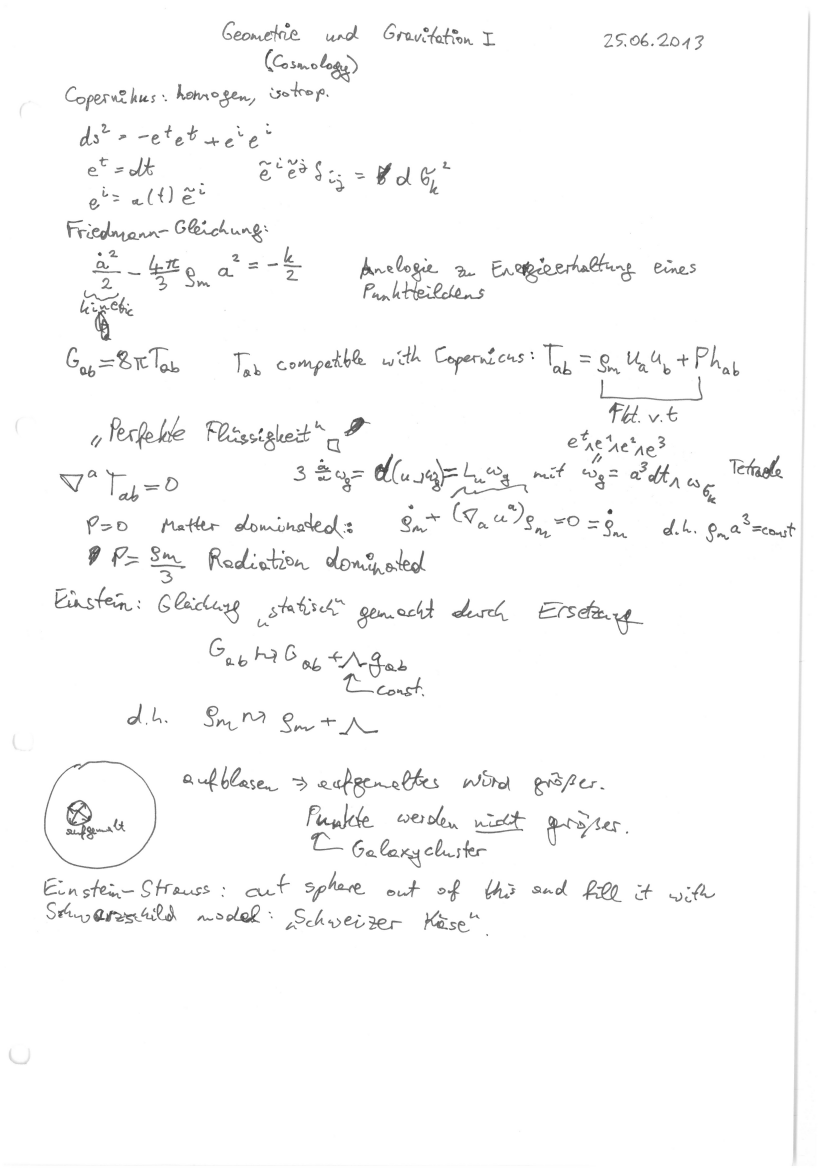 Geometrie und Gravitation I 25.06.2013
(Cosmology)
Copernikus: homogen, isotrop.
ds² = -eᵗeᵗ + eⁱeⁱ
eᵗ = dt ẽⁱẽʲδᵢⱼ = dσₖ²
eⁱ = a(t) ẽⁱ
Friedmann-Gleichung:
ȧ²/2 - 4π/3 ρₘ a² = -k/2 Analogie zu Energieerhaltung eines
kinetic Punktteilchens
G_ab = 8πT_ab T_ab compatible with Copernicus: T_ab = ρₘ u_a u_b + P h_ab
Fkt. v. t
„Perfekte Flüssigkeit“
eᵗ∧e¹∧e²∧e³
∇ᵃ T_ab = 0 3 ȧ/a ω_g = d(u⌟ω_g) = L_u ω_g mit ω_g = a³dt∧ω_σₖ Tetrade
P=0 Matter dominated: ρ̇ₘ + (∇_a uᵃ)ρₘ = 0 = ρ̇ₘ d.h. ρₘa³=const
P = ρₘ/3 Radiation dominated
Einstein: Gleichung „statisch“ gemacht durch Ersetzung
G_ab ↦ G_ab + Λg_ab
const.
d.h. ρₘ ↦ ρₘ + Λ
aufblasen ⇒ aufgemaltes wird größer.
aufgemalt Punkte werden nicht größer.
Galaxycluster
Einstein-Strauss: cut sphere out of this and fill it with
Schwarzschild model: „Schweizer Käse“.